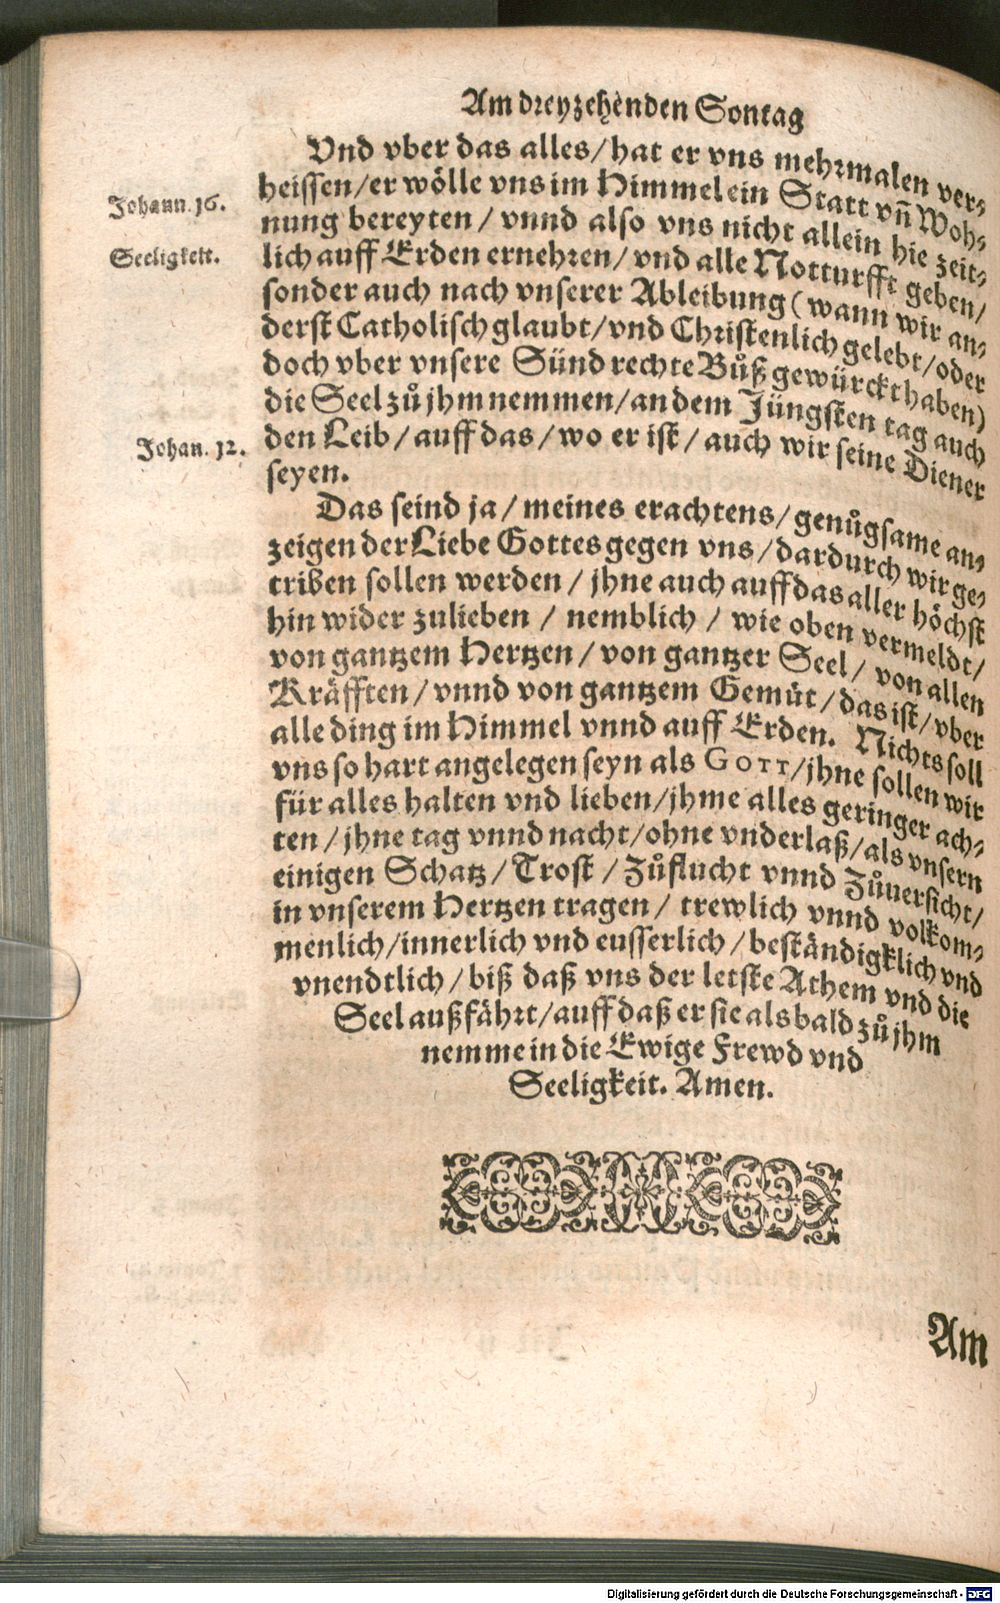 Am dreyzehenden Sontag
Vnd vber das alles/hat er vns mehrmalen ver-
heissen/er wölle vns im Himmel ein Statt vñ Woh-
Johann. 16.
nung bereyten / vnnd also vns nicht allein hie zeit-
Seeligkeit.
lich auff Erden ernehren/ vnd alle Notturfft geben/
sonder auch nach vnserer Ableibung (wann wir an-
derst Catholisch glaubt/vnd Christenlich gelebt/oder
doch vber vnsere Sünd rechte Bůß gewürckt haben)
die Seel zů jhm nemmen/an dem Jüngsten tag auch
Johan. 12.
den Leib / auff das / wo er ist / auch wir seine Diener
seyen.
Das seind ja / meines erachtens/ genůgsame an-
zeigen der Liebe Gottes gegen vns / dardurch wir ge-
triben sollen werden / jhne auch auff das aller höchst
hin wider zulieben / nemblich / wie oben vermeldt/
von gantzem Hertzen / von gantzer Seel / von allen
Kräfften / vnnd von gantzem Gemüt / das ist / vber
alle ding im Himmel vnnd auff Erden. Nichts soll
vns so hart angelegen seyn als GOTT/jhne sollen wir
für alles halten vnd lieben/jhme alles geringer ach-
ten / jhne tag vnnd nacht/ohne vnderlaß/als vnsern
einigen Schatz / Trost / Zůflucht vnnd Zůuersicht/
in vnserem Hertzen tragen / trewlich vnnd volkom-
menlich/innerlich vnd eusserlich / beständigklich vnd
vnendtlich / biß daß vns der letste Athem vnd die
Seel außfährt/auff daß er sie alsbald zů jhm
nemme in die Ewige Frewd vnd
Seeligkeit. Amen.
Am
Digitalisierung gefördert durch die Deutsche Forschungsgemeinschaft - DFG